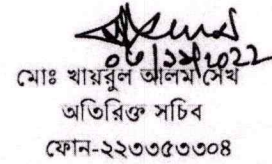 ০৬/১২/2022
মোঃ খায়রুল আলম সেখ
অতিরিক্ত সচিব
ফোন-২২৩৩৫৩৩০৪